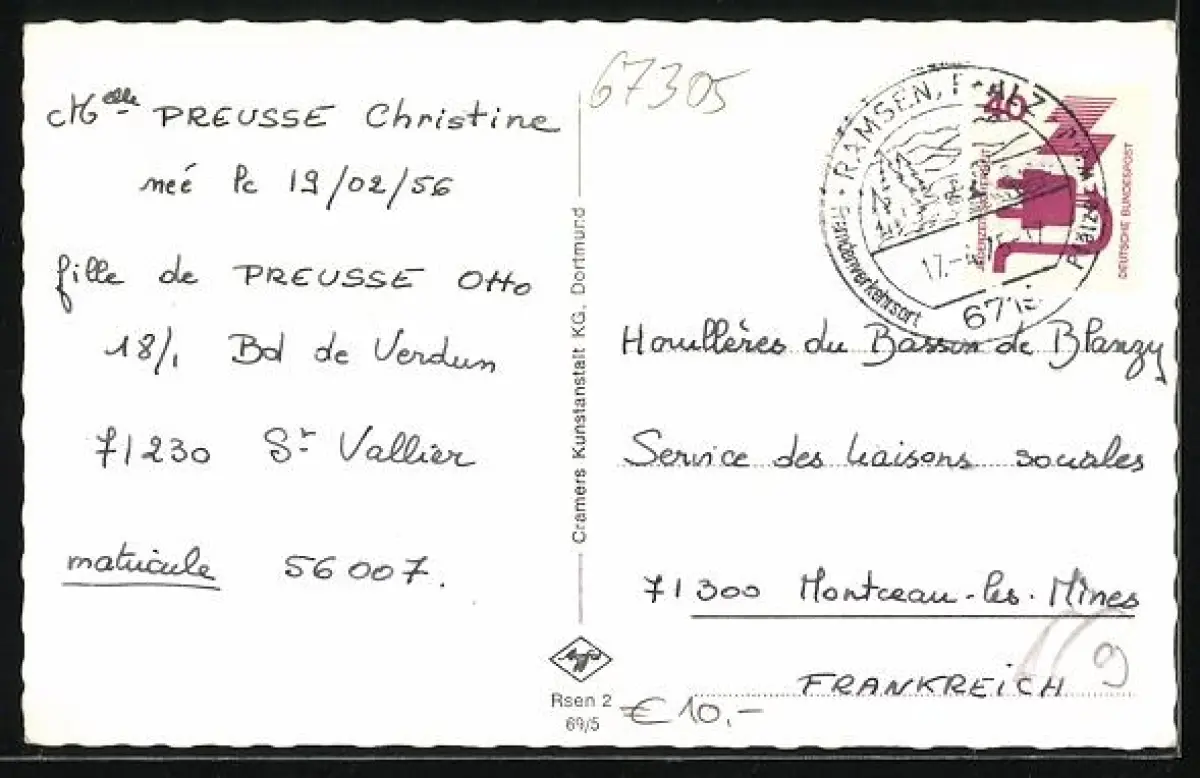 Melle PREUSSE Christine
neé le 19/02/56
fille de PREUSSE Otto
18/1 Bd de Verdun
71230 St Vallier
matricule 56007.
Cramers Kunstanstalt KG, Dortmund
Agfa
Rsen 2
69/5
67305
RAMSEN, PFALZ
Fremdenverkehrsort
Pfälzer
17.
671
40
JEDERZEIT SICHERHEIT
DEUTSCHE BUNDESPOST
Houllères du Bassin de Blanzy
Service des liaisons sociales
71300 Montceau-les-Mines
FRANKREICH
9
€ 10.-